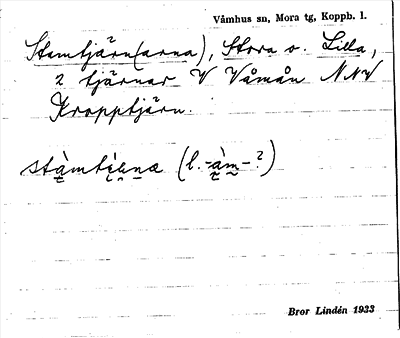 Våmhus sn, Mora tg, Koppb. l.
Stamtjärn(arna), Stora o. Lilla,
2 tjärnar V Våmån NNV
Kropptjärn.
(l. -àm- ?)
Bror Lindén 1933